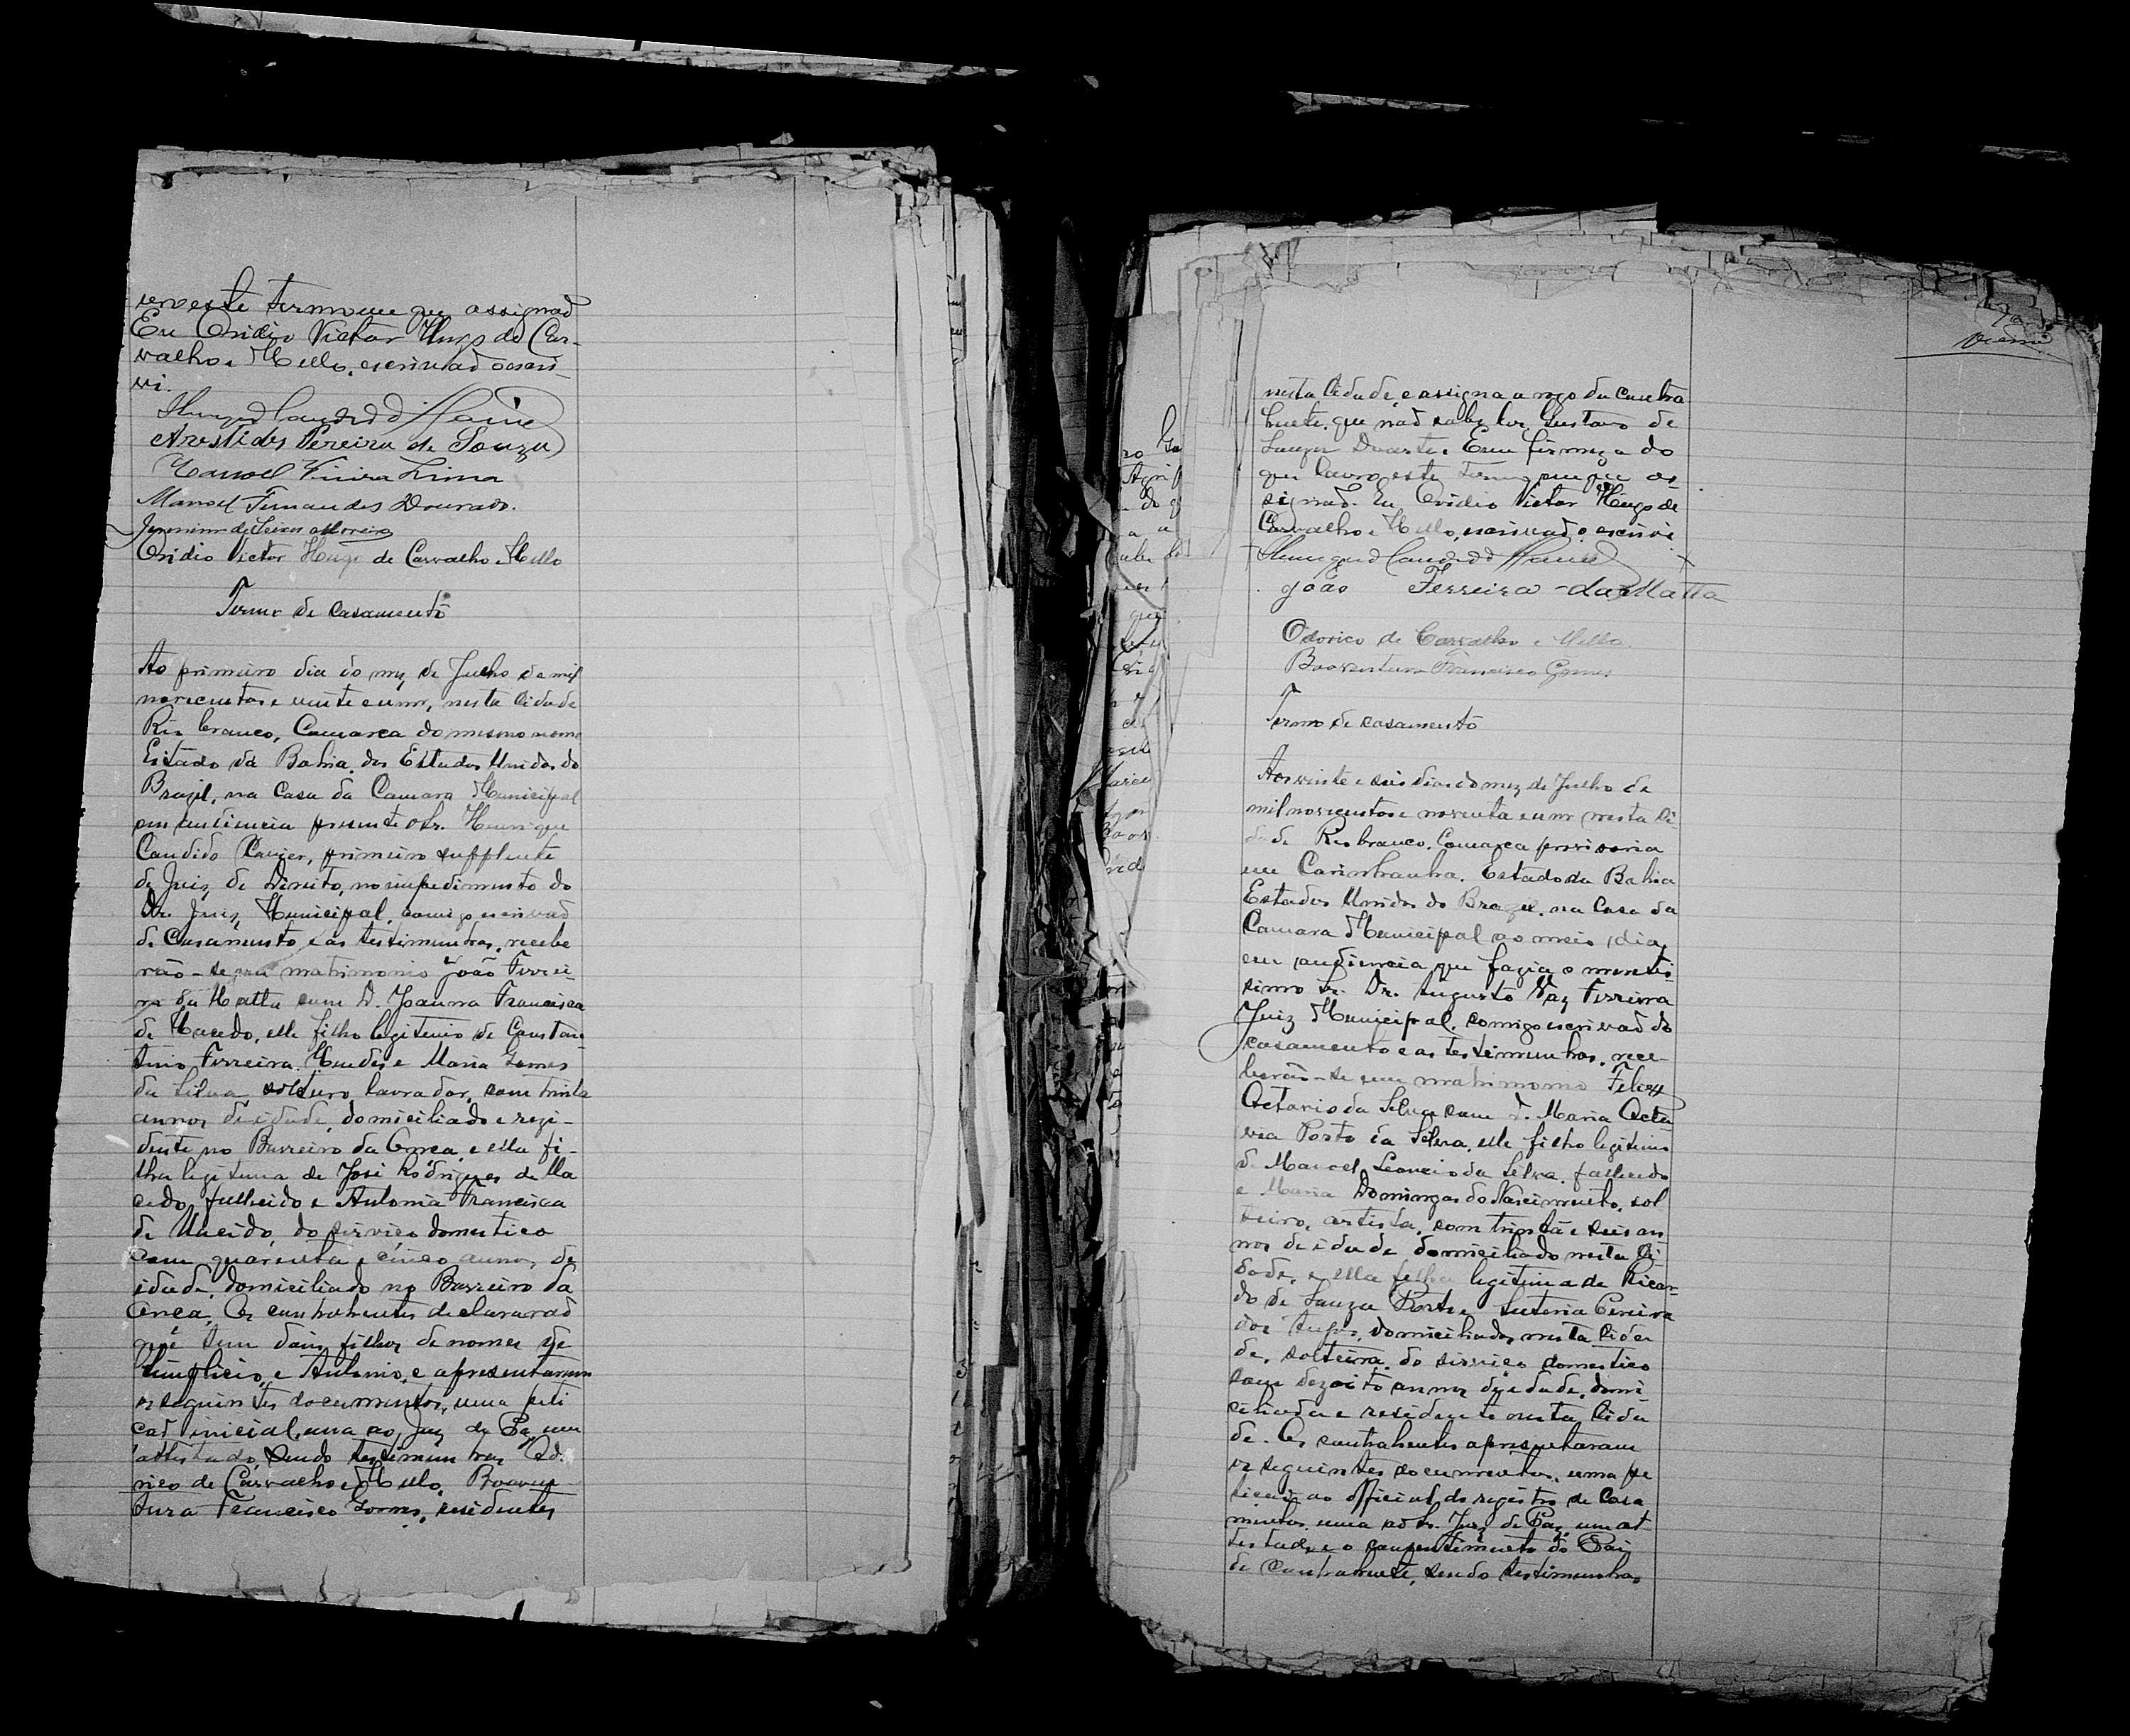 este termo em que assignaõ
Eu Ovidio Victor Hugo de Car-
valho e Mello, escrivaõ o escri-
vi.
Aristides Pereira de Souza
Manoel Vieira Lima
Manoel Fernandes Dourado.
Ovidio Victor Hugo de Carvalho e Mello
Termo de casamento
Ao primeiro dia do mez de Julho de mil
novecentos e vinte e um, nesta Cidade
Rio branco, Comarca do mesmo nome
Estado da Bahia dos Estados Unidos do
Brazil, na Casa da Camara Municipal
em audiencia presente o Sr. Henrique
Candido Xavier, primeiro supplente
de Juiz de Direito, no impedimento do
Dr. Juiz Municipal, comigo escrivaõ
de Casamento e as testimunhas, recebe
rão-se em matrimonio João Ferrei-
ra da Matta com D. Joanna Francisca
de Macedo, elle filho legitimo de Constan
tino Ferreira Mendes e Maria Gomes
da Silva, solteiro, lavrador, com trinta
annos de idade, domiciliado e rezi-
dente no Barreiro da Onça, e ella fi-
lha legitima de José Rodrigues de Ma
cedo, fallecido e Antonia Francisca
de Macêdo, do serviço domestico
com quarenta e cinco annos de
idade, domiciliado no Barreiro da
Onça. Os contrahentes declararaõ
que tem dois filhos de nomes
Simplicio, e Antonio, e apresentaram
os seguintes documentos, uma peti
caõ inicial, uma ao Juiz de Paz, um
attestado, sendo testimunhas Odo
rico de Carvalho e Mello, Boaven
tura Francisco Gomes, residentes
nesta Cidade, e assigna a rogo da contra
hente, que naõ sabe ler, Gustavo de
Souza Duarte. E em firmeza do
que lavro este termo em que as-
signaõ. Eu Ovidio Victor Hugo de
Carvalho e Mello, escrivaõ o escrivi.
João Ferreira da Matta
Odorico de Carvalho e Mello.
Boaventura Francisco Gomes
Termo de casamento
Aos vinte e seis dias do mez de Julho de
mil novecentos e noventa e um nesta Ci-
dade Rio branco, Comarca provisoria
em Carinhanha, Estado da Bahia
Estados Unidos do Brazil, na Casa da
Camara Municipal ao meio dia,
em audiencia que fazia o meretis
simo Sr. Dr. Augusto Vaz Ferreira
Juiz Municipal, comigo escrivaõ do
casamento e as testimunhas, rece-
berão-se em matrimonio Felix
Octavio da Silva com D. Maria Octa
via Porto da Silva, elle filho legitimo
de Manoel Leoncio da Silva, fallecido
e Maria Domingas do Nascimento, sol
teiro, artista, com trinta e seis an
nos de idade domiciliado nesta Ci-
dade, e ella filha legitima de Ricar-
do de Souza Porto e Luteria Pereira
dos Anjos, domiciliados nesta Cida
de, solteira, do serviço domestico
com dezoito annos de idade, domi
ciliada e residente nesta Cida
de. Os contrahentes apresentaram
os seguintes documentos, uma pe
ticaõ ao official do registro de Casa
mentos, uma ao Sr. Juiz de Paz, um at
testado, e o consentimento do Pai
da Contrahente, sendo testimunhas